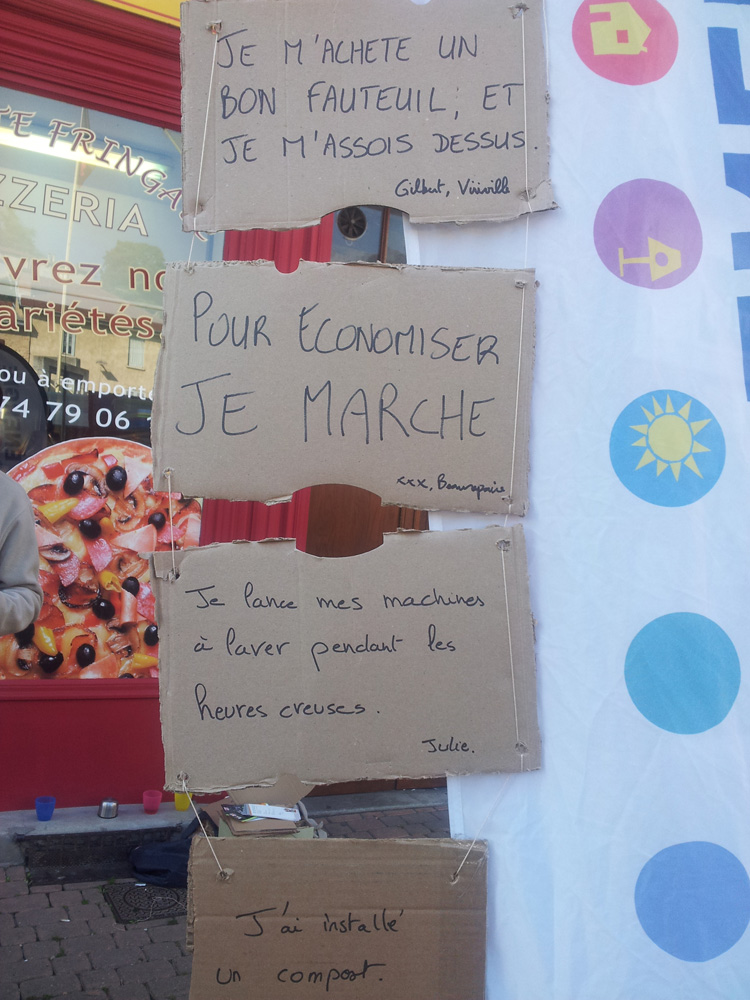 JE M'ACHETE UN
BON FAUTEUIL; ET
JE M'ASSOIS DESSUS.
Gilbert,
POUR ECONOMISER
JE MARCHE
xxx, Beaurepaire
Je lance mes machines
à laver pendant les
heures creuses.
Julie.
J'ai installé
un compost.
TE FRINGA
ZZERIA
vrez no
ariétés
ou à emporte
74 79 06